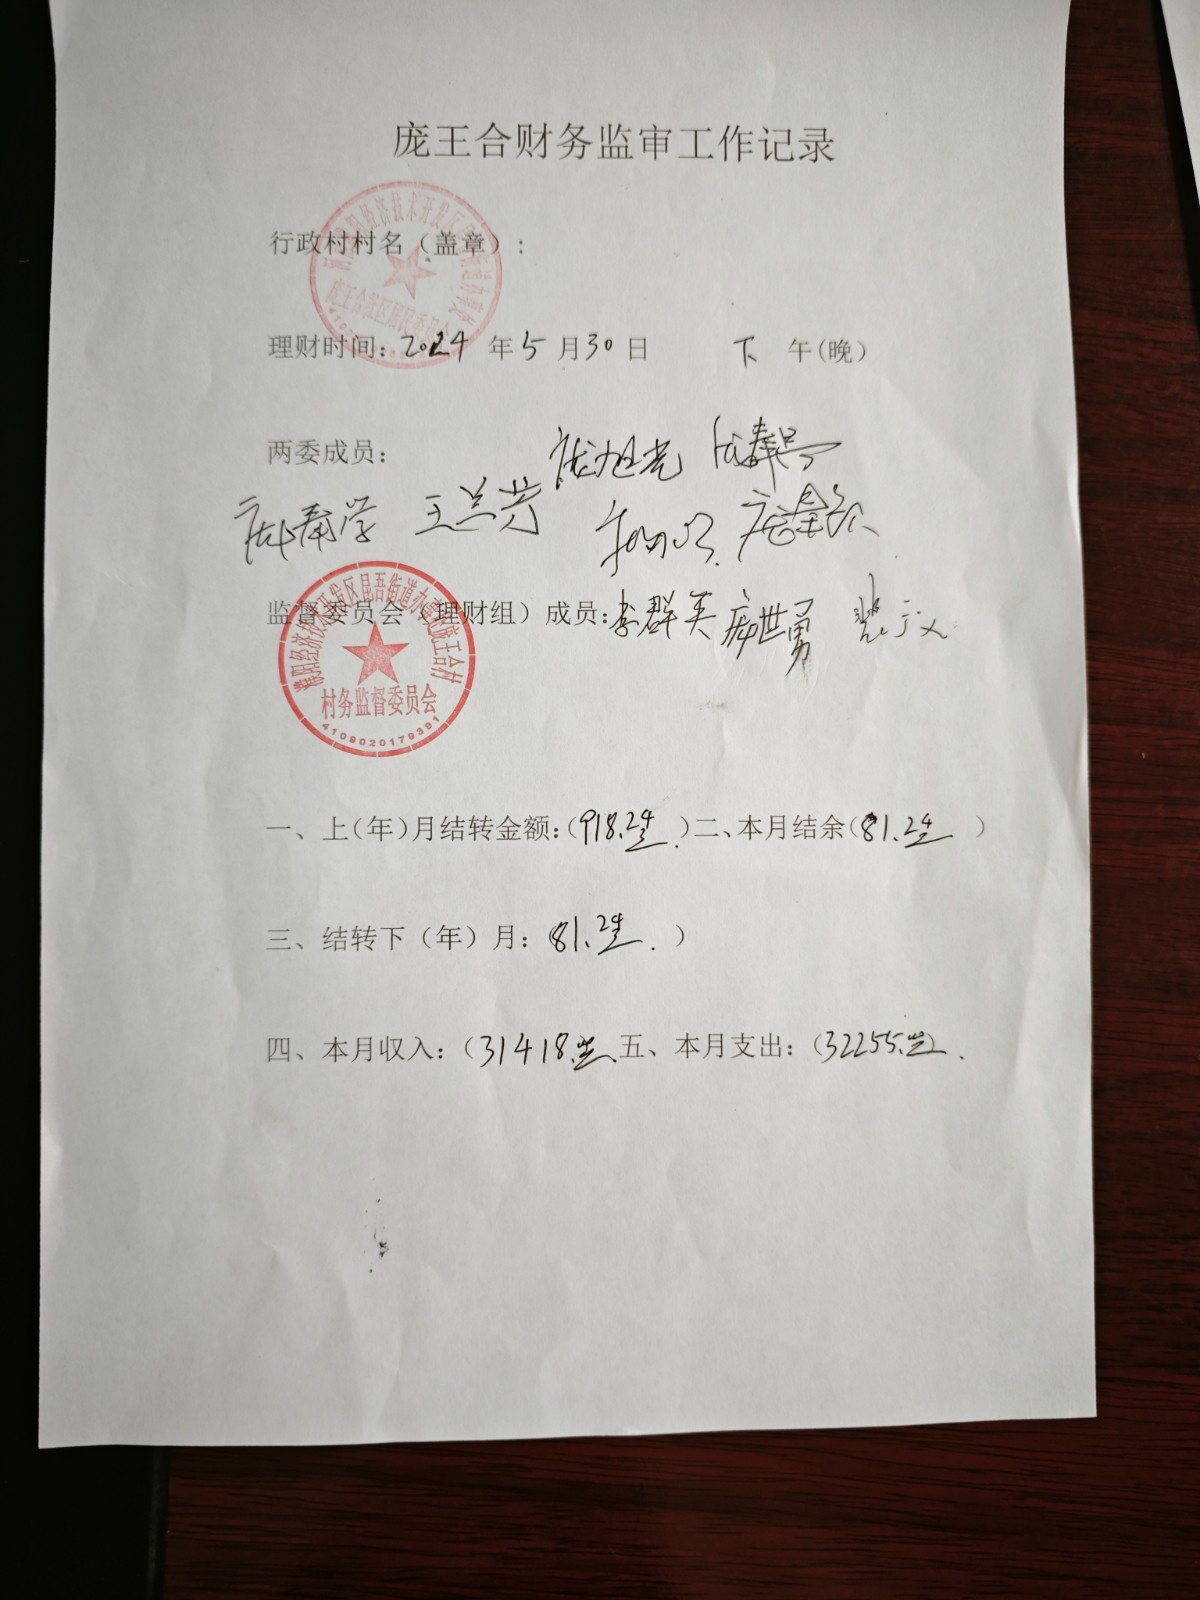 庞王合财务监审工作记录
行政村村名（盖章）:
庞王合社区居民委员会
理财时间: 2024 年 5 月 30 日 下 午(晚)
两委成员: 庞旭光
庞奉学 王兰芳
监督委员会（理财组）成员: 李群英 庞世勇
濮阳经济技术开发区昆吾街道办事处庞王合村
村务监督委员会
4109020179391
一、上(年)月结转金额:(918.24 )二、本月结余(81.24 )
三、结转下（年）月: (81.24 )
四、本月收入: (31418. 五、本月支出: (32255.